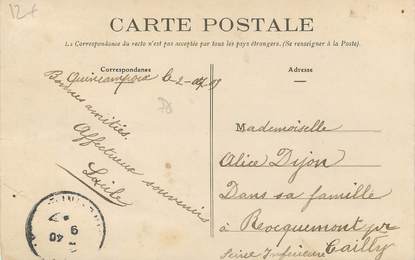 12+
CARTE POSTALE
La Correspondance du recto n'est pas acceptée par tous les pays étrangers. (Se renseigner à la Poste).
Correspondance
Quincampoix le 2-
Bonnes amitiés.
Affectueux souvenirs
Adresse
Mademoiselle
Alice Dijon
Dans sa famille
à Rocquemont pr
Cailly
Seine Inférieure
9
40